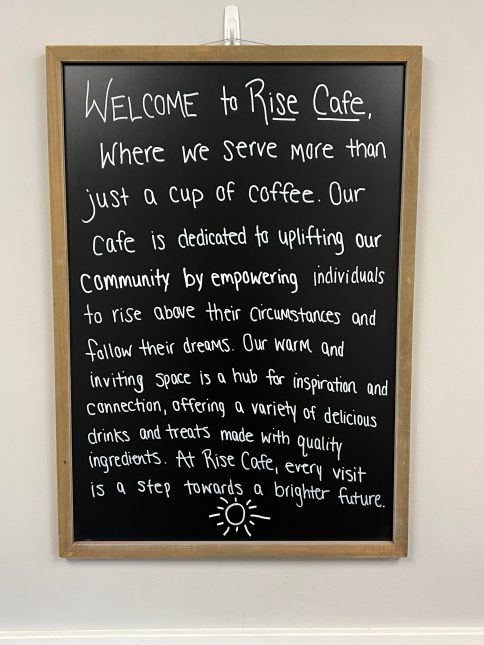 WELCOME to Rise Cafe,
Where we serve more than
just a cup of coffee. Our
cafe is dedicated to uplifting our
community by empowering individuals
to rise above their circumstances and
follow their dreams. Our warm and
inviting space is a hub for inspiration and
connection, offering a variety of delicious
drinks and treats made with quality
ingredients. At Rise Cafe, every visit
is a step towards a brighter future.